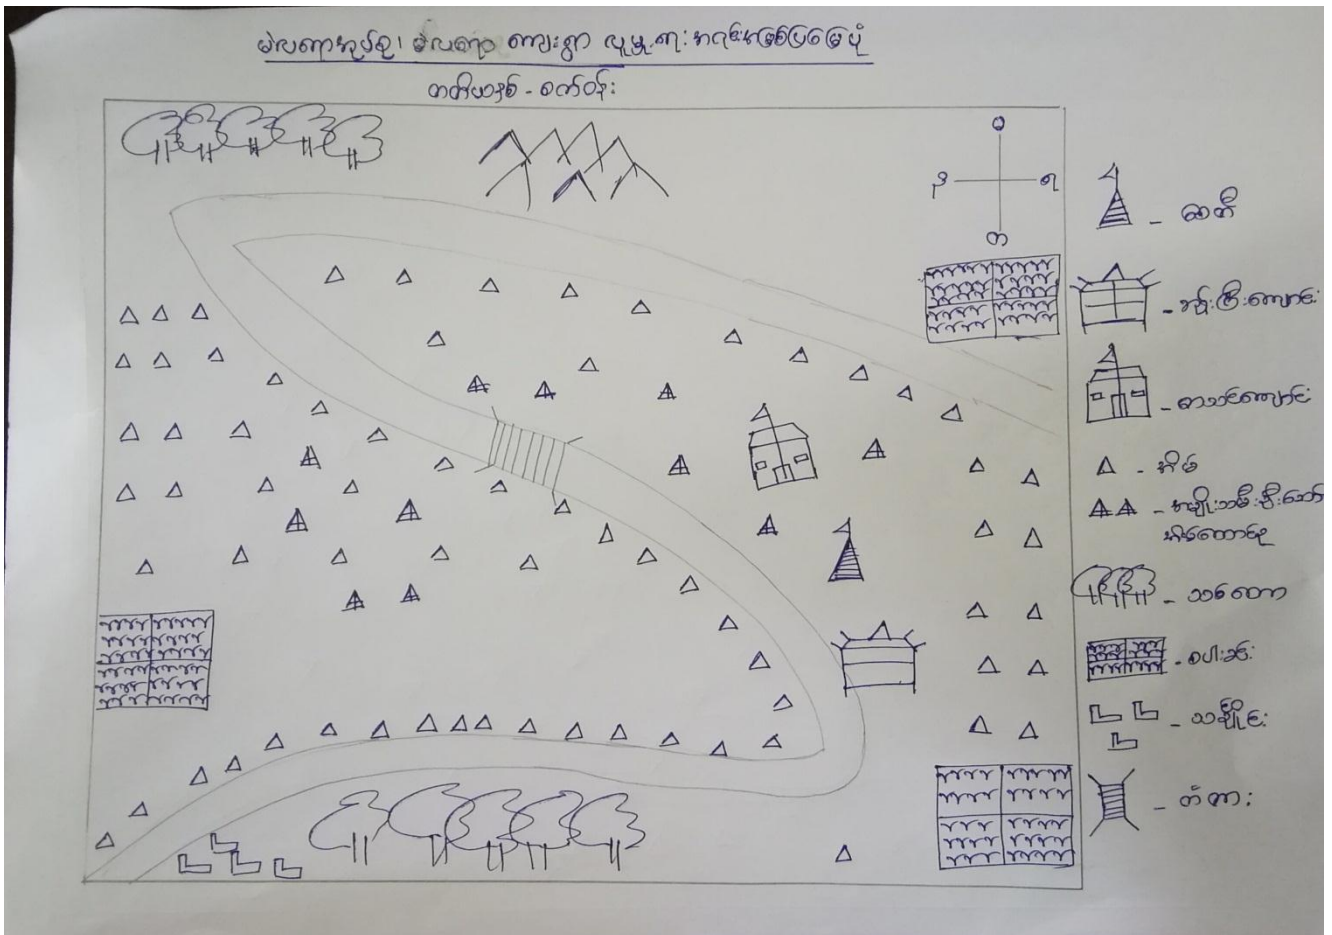 မဲလတောအုပ်စု၊ မဲလတော ကျေးရွာ လူမှုရေးအရင်းအမြစ်ပြမြေပုံ
တတိယနှစ် - စက်ဝန်း
မ
ဒ
ရ
တ
- စေတီ
- ဘုန်းကြီးကျောင်း
- စာသင်ကျောင်း
- အိမ်
- အမျိုးသမီးဦးဆောင်
အိမ်ထောင်စု
- သစ်တော
- စပါးခင်း
- သင်္ချိုင်း
- တံတား